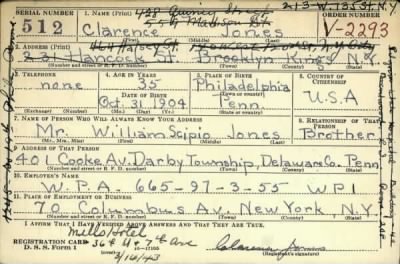 SERIAL NUMBER
512
1. NAME (Print)
Clarence Jones
(First) (Middle) (Last)
213 W. 135 St. N.Y.
ORDER NUMBER
V-2293
559 Madison St.
2. ADDRESS (Print)
Hancock St. Brooklyn Kings N.Y.
(Number and street or R. F. D. number) (Town) (County) (State)
3. TELEPHONE
none
(Exchange) (Number)
4. AGE IN YEARS
35
DATE OF BIRTH
Oct. 31 1904
(Mo.) (Day) (Yr.)
5. PLACE OF BIRTH
Philadelphia
(Town or county)
Penn.
(State or country)
6. COUNTRY OF CITIZENSHIP
U.S.A
7. NAME OF PERSON WHO WILL ALWAYS KNOW YOUR ADDRESS
Mr. William Scipio Jones
(Mr., Mrs., Miss) (First) (Middle) (Last)
8. RELATIONSHIP OF THAT PERSON
Brother
9. ADDRESS OF THAT PERSON
401 Cooke Av. Darby Township, Delaware Co. Penn.
(Number and street or R. F. D. number) (Town) (County) (State)
10. EMPLOYER'S NAME
W.P.A. 665-97-3-55 WP1
11. PLACE OF EMPLOYMENT OR BUSINESS
70 Columbus Av. New York, N.Y.
(Number and street or R. F. D. number) (Town) (County) (State)
I AFFIRM THAT I HAVE VERIFIED ABOVE ANSWERS AND THAT THEY ARE TRUE.
Mills Hotel
REGISTRATION CARD
D. S. S. Form 1
36th & 7th Ave
Clarence Jones